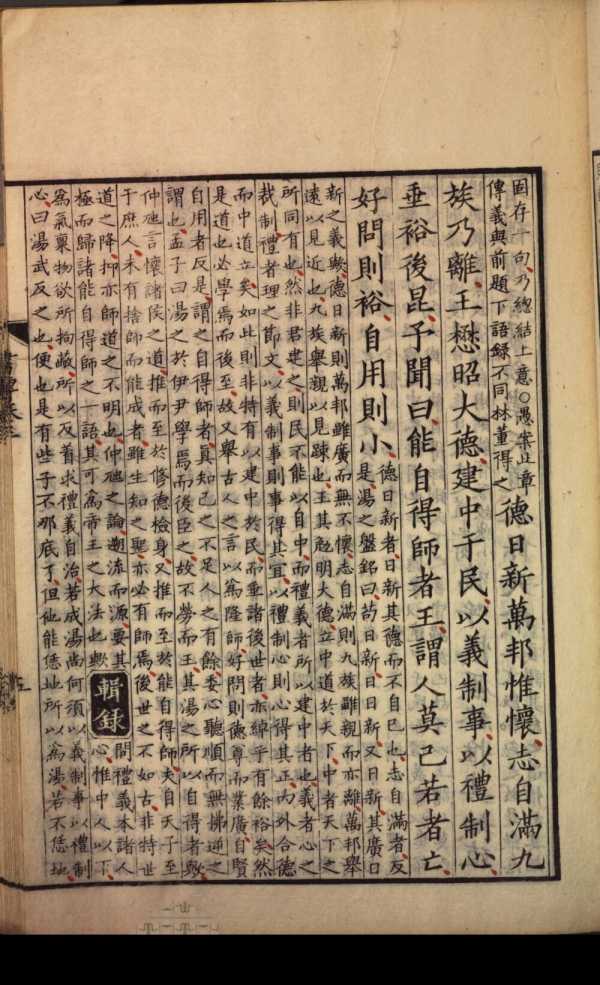 固存一句乃總結上意○愚案此章
傳義與前題下語錄不同林董得之
德日新萬邦惟懷志自滿九
族乃離王懋昭大德建中于民以義制事以禮制心
垂裕後昆予聞曰能自得師者王謂人莫己若者亡
好問則裕自用則小
德日新者日新其德而不自已也志自滿者反
是湯之盤銘曰苟日新日日新又日新其廣日
新之義歟德日新則萬邦雖廣而無不懷志自滿則九族雖親而亦離萬邦舉
遠以見近也九族舉親以見踈也王其勉明大德立中道於天下中者天下之
所同有也然非君建之則民不能以自中而禮義者所以建中者也義者心之
裁制禮者理之節文以義制事則事得其宜以禮制心則心得其正內外合德
而中道立矣如此則非特有以建中於民而垂諸後世者亦綽乎有餘裕矣然
是道也必學焉而後至故又舉古人之言以爲隆師好問則德尊而業廣自賢
自用者反是謂之自得師者真知己之不足人之有餘委心聽順而無拂逆之
謂也孟子曰湯之於伊尹學焉而後臣之故不勞而王其湯之所以自得者歟
仲虺言懷諸侯之道推而至於修德檢身又推而至於能自得師夫自天子至
于庶人未有捨師而能成者雖生知之聖亦必有師焉後世之不如古非特世
道之降抑亦師道之不明也仲虺之論遡流而源要其
極而歸諸能自得師之一語其可爲帝王之大法也歟
輯錄
問禮義本諸人
心惟中人以下
爲氣禀物欲所拘蔽所以反着求禮義自治若成湯尚何須以義制事以禮制
心曰湯武反之也便也是有些子不那底了但他能恁地所以爲湯若不恁地